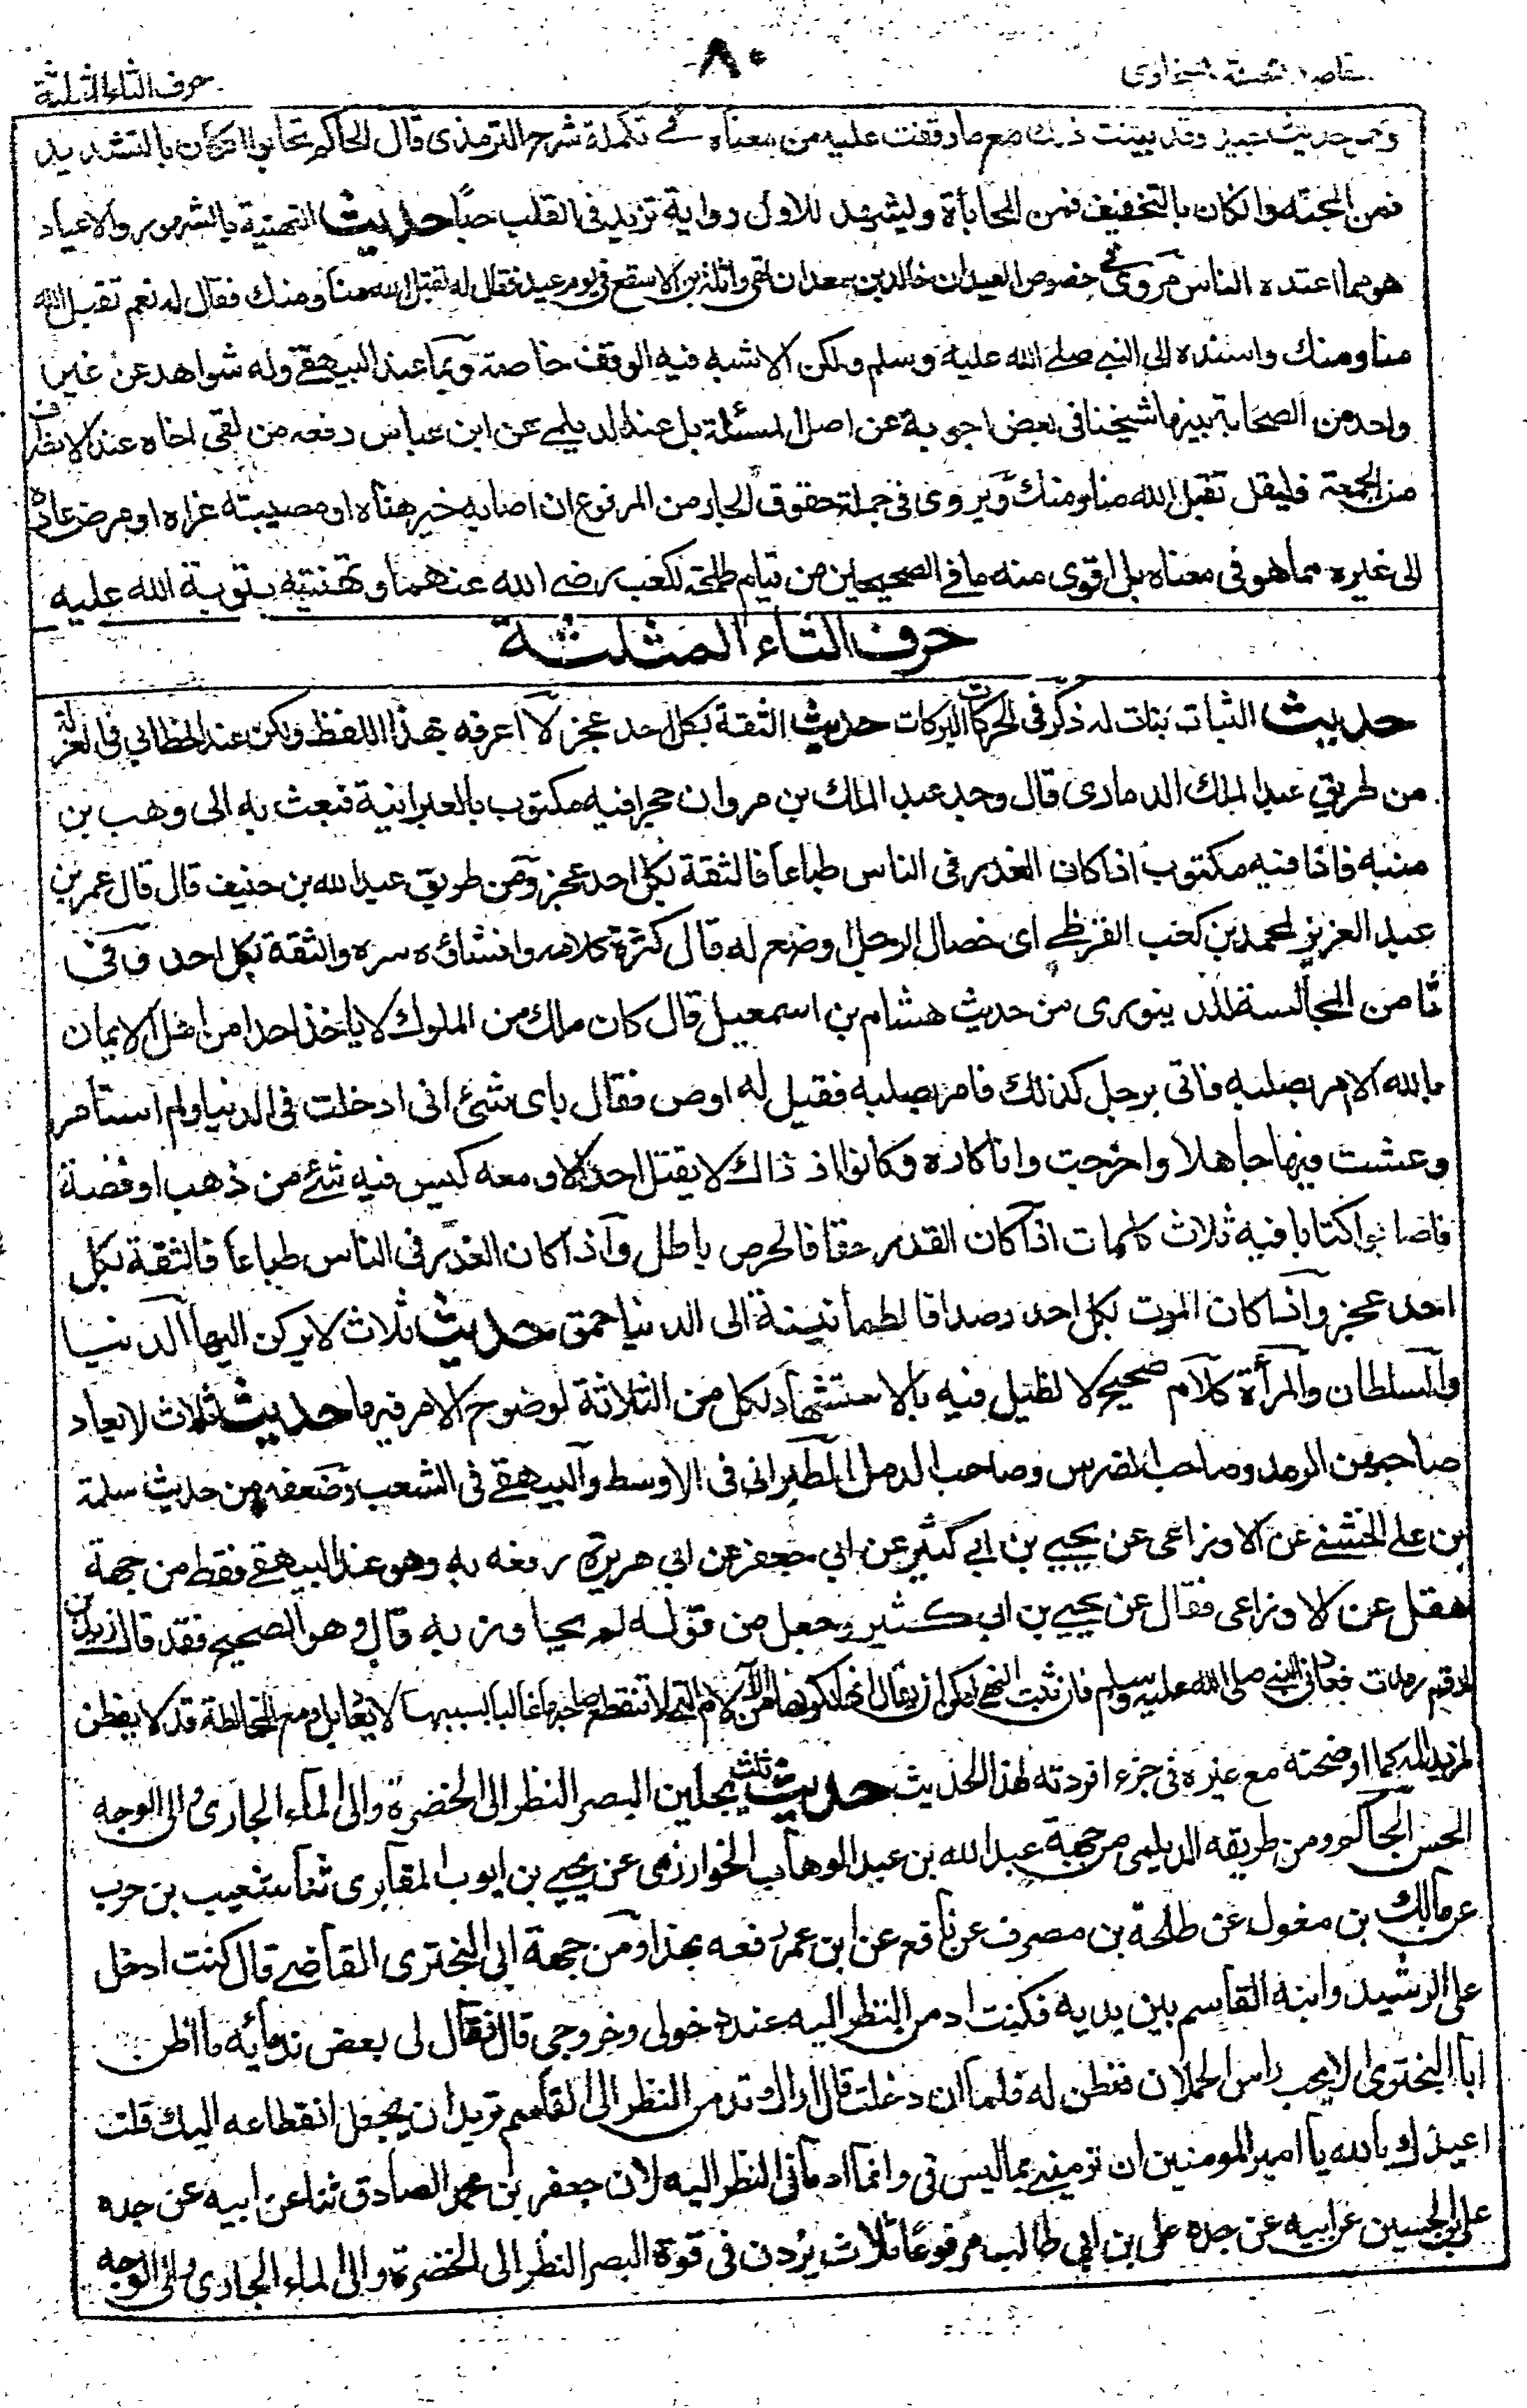 مقاصد حسنة سخاوى
٨٠
حرف الثاء المثلثة
وهو حديث جيد وقد بينت ذلك مع ما وقفت عليه من معناه فے تكملة شرح الترمذى قال الحاكم تحابوا ان كان بالتشديد
فمن المحبة وان كان بالتخفيف فمن المحاباة وليشهد للاول رواية تزيد فى القلب حبًا حديث التهنية بالشهور والاعياد
هو مما اعتده الناس مروى فے خصوص العيد ان خالد بن معدان لقى واثلة بن الاسقع فى يوم عيد فقال له تقبل الله منا ومنك فقال له نعم تقبل الله
منا ومنك واسنده الى النبي صلے الله عليه وسلم ولكن الاشبه فيه الوقف خاصة وبما عند البيهقے وله شواهد عن غير
واحد من الصحابة بينها شيخنا فى بعض اجوبة عن اصل المسئلة بل عند الديلمے عن ابن عباس رفعه من لقى اخاه عند الانصراف
من الجمعة فليقل تقبل الله منا ومنك ويروى فى جملة حقوق الجار من المرفوع ان اصابه خير هناه او مصيبته عزاه او مرض عاده
الى غيره مما هو فى معناه بل اقوى منه ما فے الصحيحين من قيام طلحة لكعب رضے الله عنهما وتهنيته بتوبة الله عليه
حرف الثاء المثلثة
حديث الثبات بنات له ذكر فى الحركات البركات حديث الثقة بكل احد عجز لا اعرفه بهذا اللفظ ولكن عند الخطابي فى العزلة
من طريق عبد الملك الدمارى قال وجد عبد الملك بن مروان حجرا فيه مكتوب بالعبرانية فبعث به الى وهب بن
منبه فاذا فيه مكتوب اذا كان الغدر فى الناس طباعا فالثقة بكل احد عجز ومن طريق عبد الله بن حنيف قال قال عمر بن
عبد العزيز لمحمد بن كعب القرظے اى خصال الرجل اوضع له قال كثرة كلامه وافشاؤه سره والثقة بكل احد وفى
ثا من المجالسة للدينورى من حديث هشام بن اسمعيل قال كان ملك من الملوك لا ياخذ احدا من اهل الايمان
بالله الا امر بصلبه فاتى برجل كذلك فامر بصلبه فقيل له اوص فقال باى شئ انى ادخلت فى الدنيا ولم استامر
وعشت فيها جاهلا واخرجت وانا كاره وكانوا اذ ذاك لا يقتل احد الا ومعه كيس فيه شئے من ذهب او فضة
فاصابوا كتابا فيه ثلاث كلمات اذا كان القدر حقا فالحرص باطل واذا كان الغدر فى الناس طباعا فالثقة بكل
احد عجز واذا كان الموت بكل احد رصدا فالطمانينة الى الدنيا حمق حديث ثلاث لا يركن اليها الدنيا
والسلطان والمرأة كلام صحيح لا نطيل فيه بالاستشهاد لكل من الثلاثة لوضوح الامر فيها حديث ثلاث لا يعاد
صاحبهن الرمد وصاحب الضرس وصاحب الدمل الطبرانى فى الاوسط والبيهقے فى الشعب وضعفه من حديث سلمة
بن على الخشنے عن الاوزاعى عن يحيے بن ابے كثير عن ابى جعفر عن ابي هريرة رفعه به وهو عند البيهقے فقط من جهة
هقل عن الاوزاعى فقال عن يحيے بن ابى كثير وجعل من قوله لم يجاوز به قال وهو الصحيح فقد قال زيد بن
ارقم رمدت فعادنى النبے صلى الله عليه وسلم فان ثبت النهے امكن ان يقال انها لكونها من الآلام التے لا تنقطع صاحبها غالبا بسببها لا يعاد بل ومع المخالطة قد لا يفطن
لمزيد المه كما اوضحته مع غيره فى جزء افردته لهذا الحديث حديث ثلث يجلين البصر النظر الى الخضرة والى الماء الجارى والى الوجه
الحسن الحاكم ومن طريقه الديلمى من جهة عبد الله بن عبد الوهاب الخوارزمى عن يحيے بن ايوب المقابرى ثنا شعيب بن حرب
عن مالك بن مغول عن طلحة بن مصرف عن نافع عن ابن عمر رفعه بهذا ومن جهة ابى البخترى القاضے قال كنت ادخل
على الرشيد وابنه القاسم بين يديه فكنت ادمن النظر اليه عند دخولى وخروجى قال فقال لى بعض ندمائه ما اظن
ابا البخترى الا يحب راس الحملان ففطن له فلما ان دخلت قال اراك تدمن النظر الى القاسم تريد ان يجعل انقطاعه اليك قلت
اعيذك بالله يا امير المومنين ان ترمينے بما ليس فى وانما ادمانى النظر اليه لان جعفر بن محمد الصادق ثنا عن ابيه عن جده
على بن الحسين عن ابيه عن جده على بن ابي طالب مرفوعًا ثلاث يزدن فى قوة البصر النظر الى الخضرة والى الماء الجارى والى الوجه